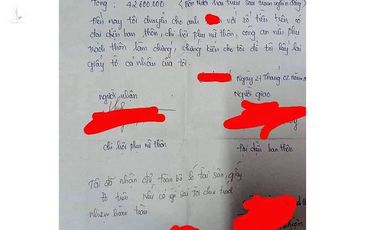 Tổng : 42.600.000 (Bốn mươi hai triệu sáu trăm nghìn đồng)
Đến nay tôi chuyển cho anh với số tiền trên, có
đại diện ban thôn, chi hội phụ nữ thôn, công an
thôn làm chứng, chứng kiến cho tôi đó tôi lấy lại
giấy tờ cá nhân của tôi.
Ngày 27 tháng 02 năm
người nhận
Người giao
chi hội phụ nữ thôn
Đại diện ban thôn
Tôi đã nhận đủ toàn bộ số tài sản, giấy
tờ trên. Nếu có gì sai tôi chịu trách
nhiệm hoàn toàn